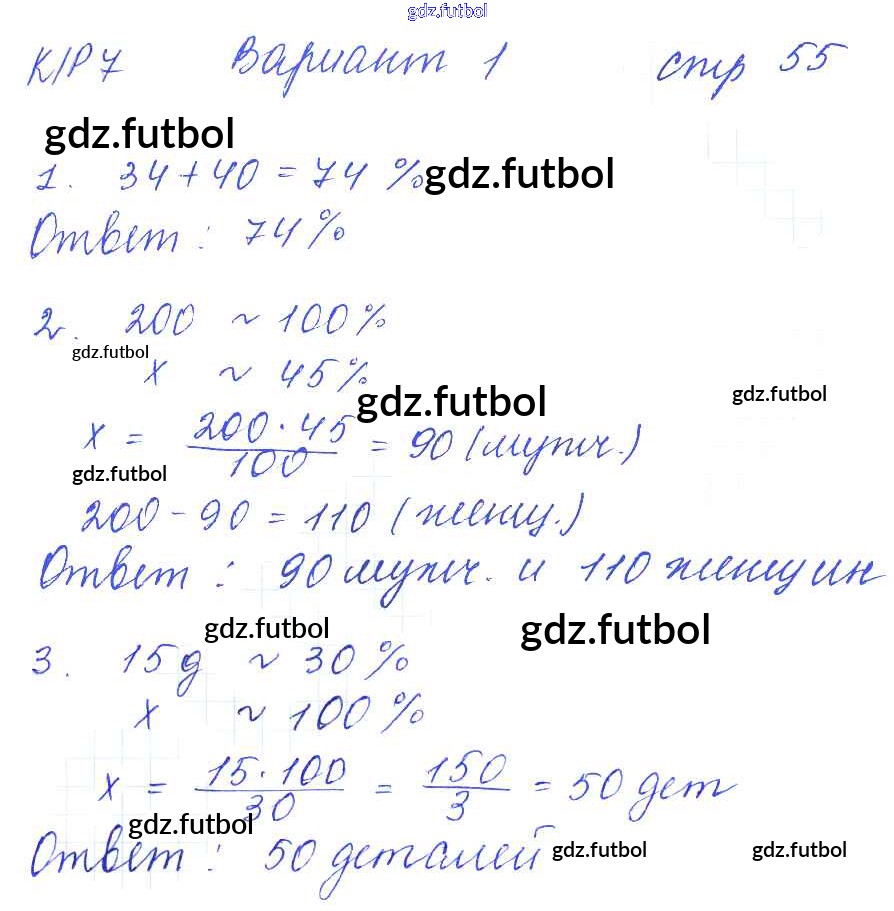 gdz.futbol
К/Р 7 Вариант 1 стр 55
gdz.futbol
1. 34 + 40 = 74 % gdz.futbol
Ответ : 74%
2. 200 ~ 100%
gdz.futbol
x ~ 45%
gdz.futbol gdz.futbol
x = 200 · 45 / 100 = 90 (мужч.)
gdz.futbol
200 - 90 = 110 (женщ.)
Ответ : 90 мужч. и 110 женщин
gdz.futbol gdz.futbol
3. 15 д ~ 30%
x ~ 100%
x = 15 · 100 / 30 = 150 / 3 = 50 дет
gdz.futbol
Ответ : 50 деталей gdz.futbol gdz.futbol